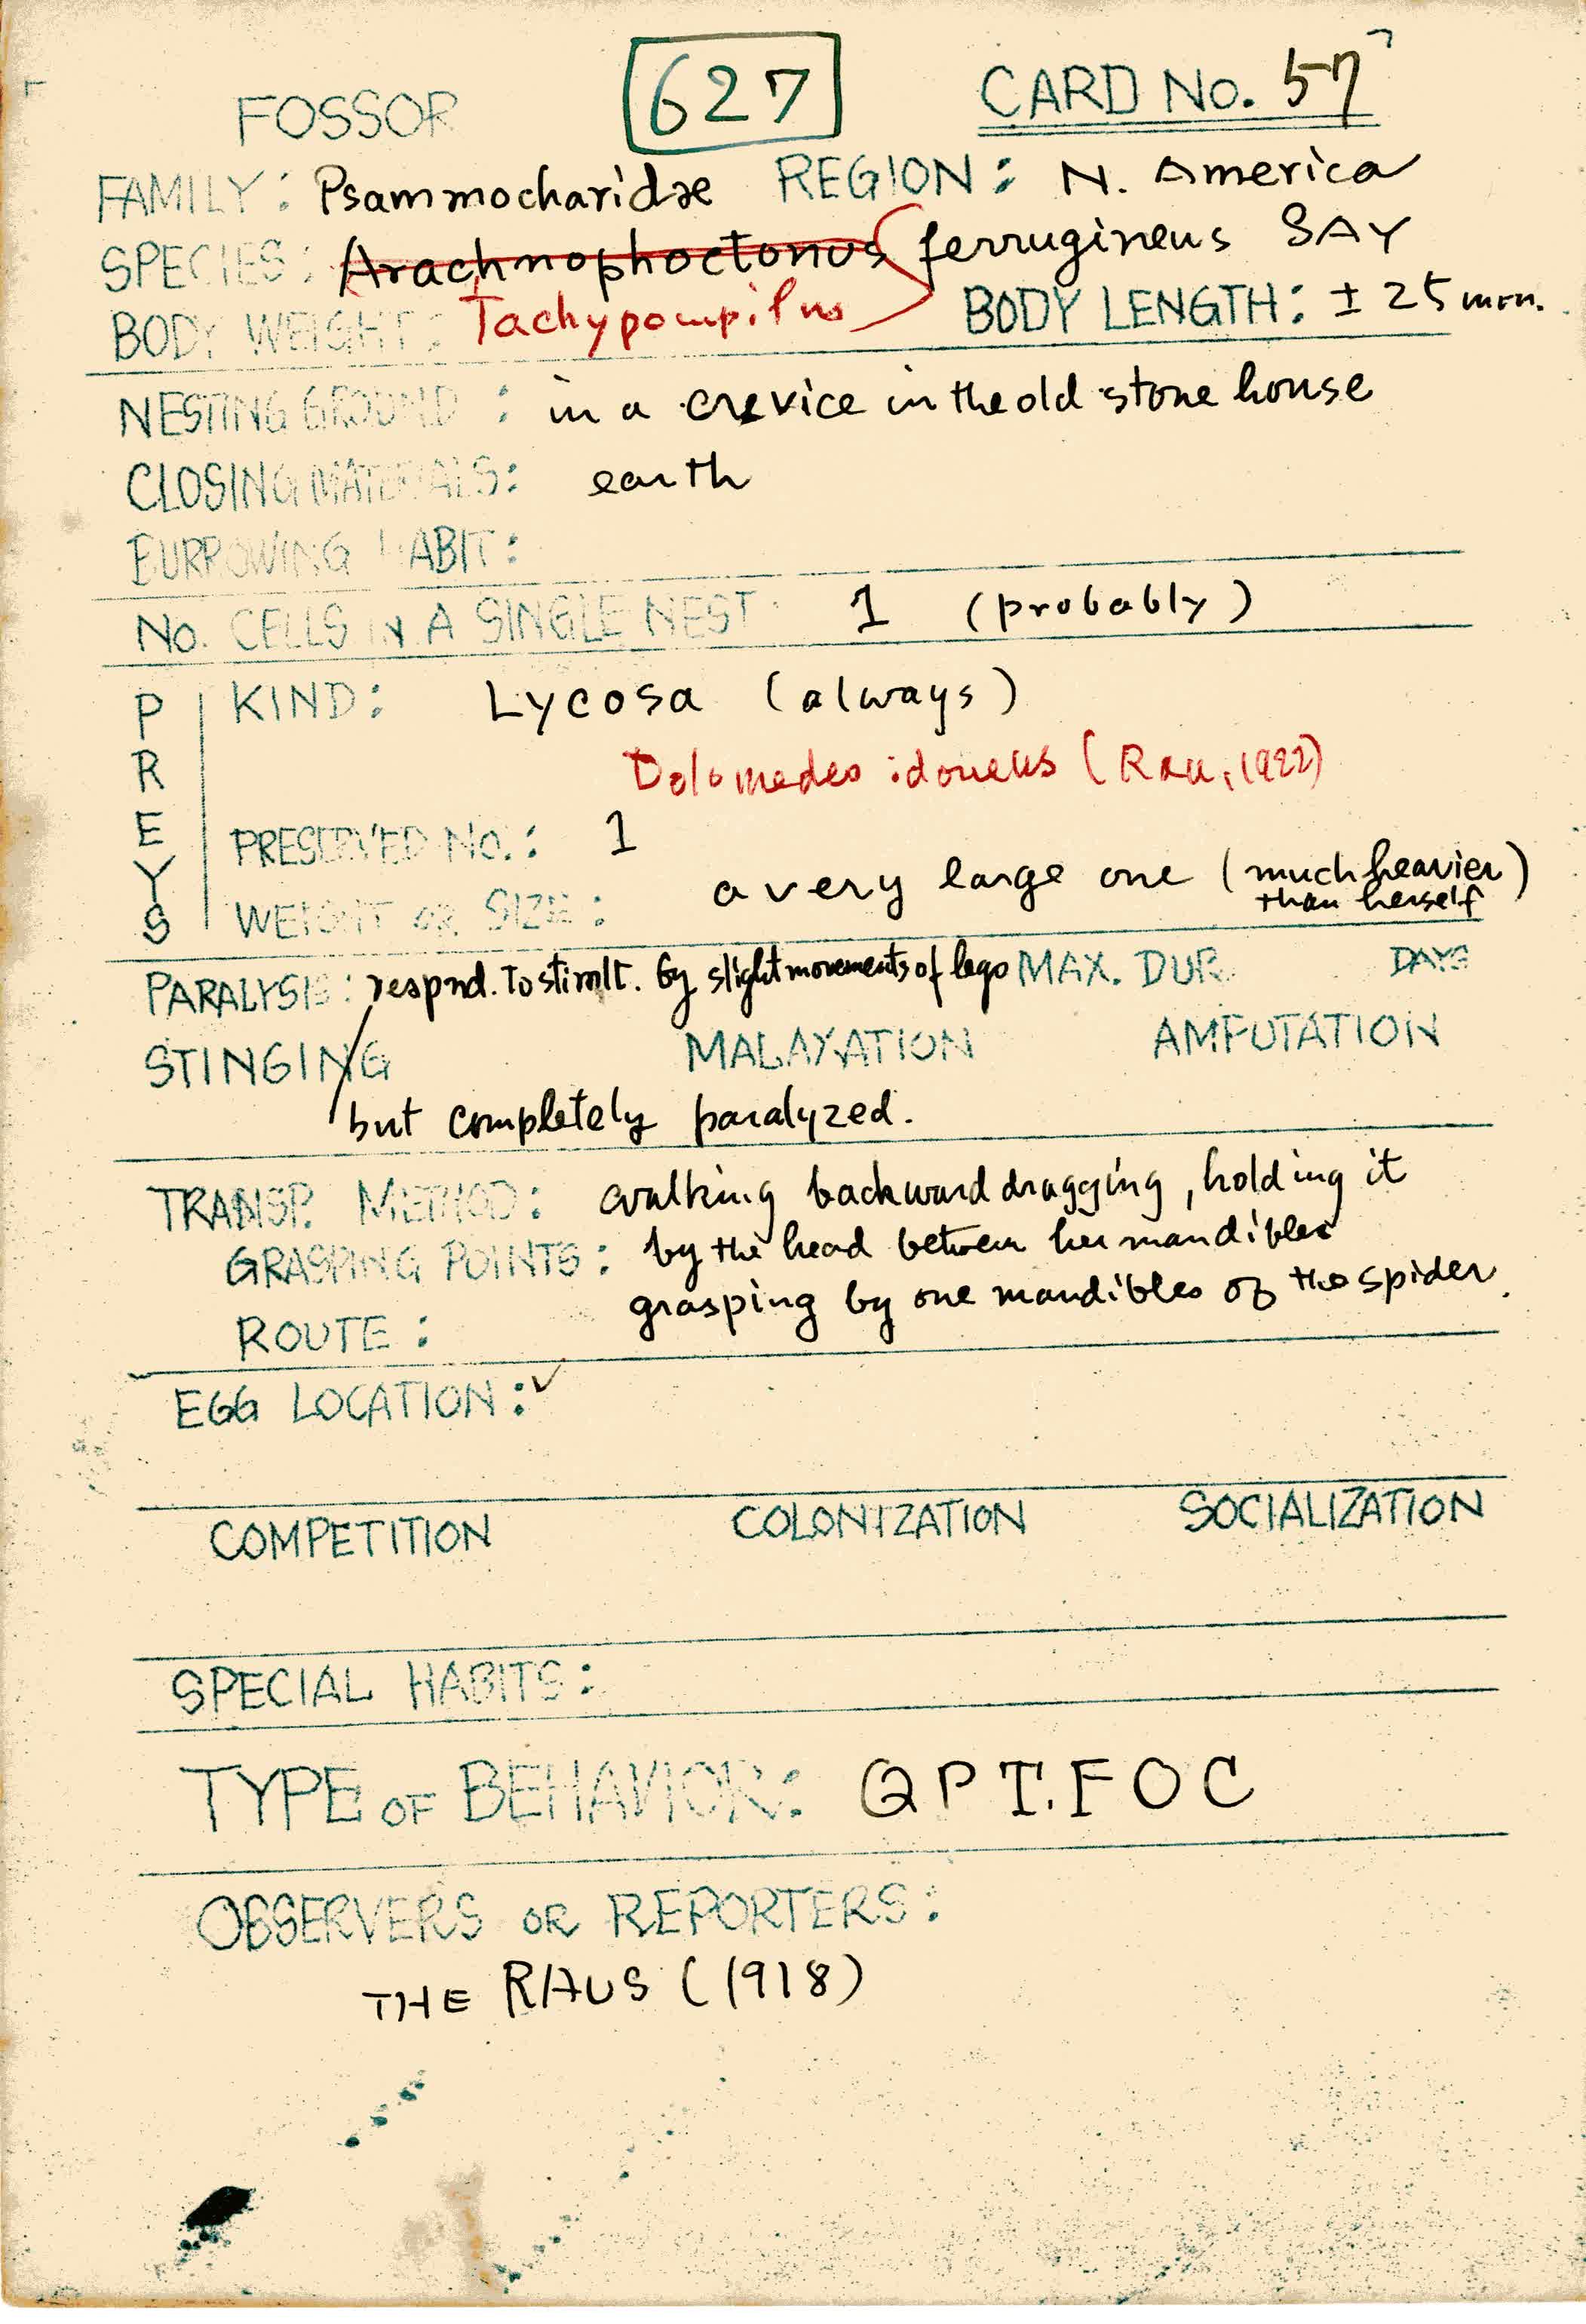 FOSSOR 627 CARD No. 57
FAMILY: Psammocharidæ REGION: N. America
SPECIES: Arachnophoctonus ferrugineus SAY
BODY WEIGHT: Tachypompilus BODY LENGTH: ± 25 mm.
NESTING GROUND: in a crevice in the old stone house
CLOSING MATERIALS: earth
BURROWING HABIT:
No. CELLS IN A SINGLE NEST: 1 (probably)
PREYS
KIND: Lycosa (always)
Dolomedes idoneus (Rau, 1922)
PRESERVED No.: 1
WEIGHT OR SIZE: a very large one (much heavier than herself)
PARALYSIS: respnd. to stimlt. by slight movements of legs MAX. DUR. DAYS
STINGING MALAXATION AMPUTATION
but completely paralyzed.
TRANSP. METHOD: walking backward dragging, holding it
GRASPING POINTS: by the head between her mandibles
ROUTE: grasping by one mandibles of the spider.
EGG LOCATION: ✓
COMPETITION COLONIZATION SOCIALIZATION
SPECIAL HABITS:
TYPE OF BEHAVIOR: QPT.FOC
OBSERVERS OR REPORTERS:
THE RAUS (1918)